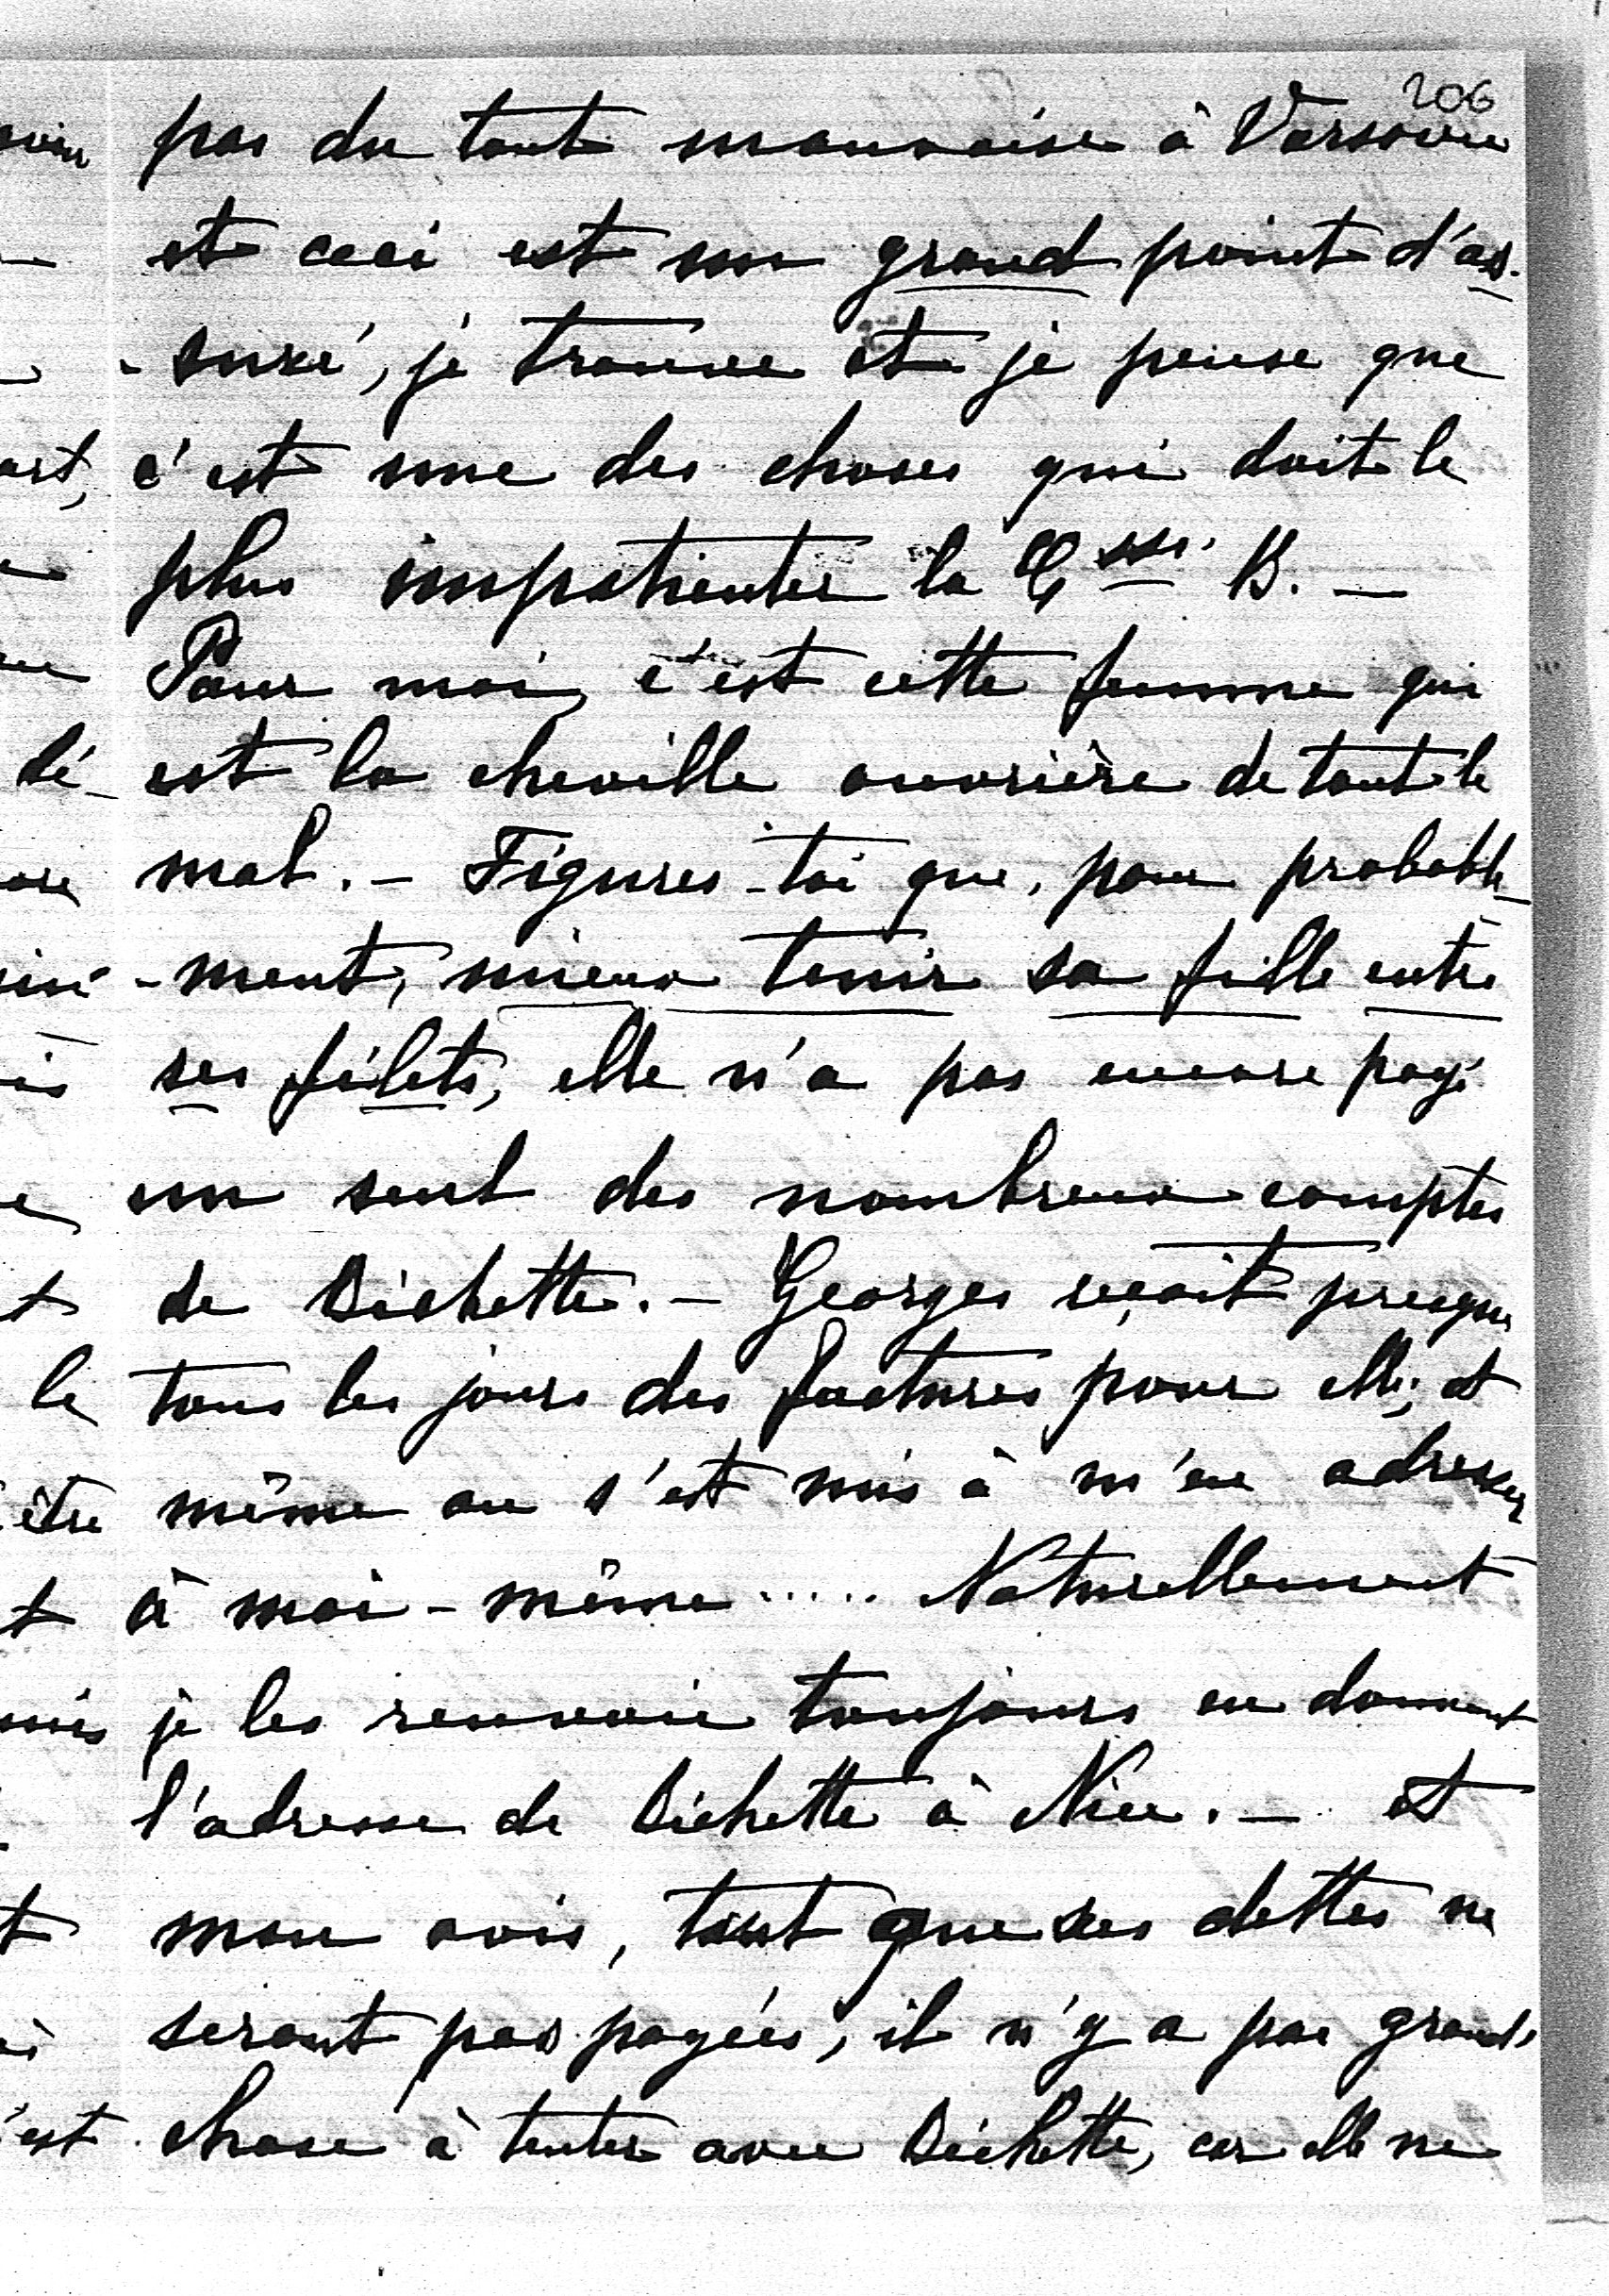 206
pas du tout mauvaise à Varsovie
et ceci est un grand point d'as-
-suré, je trouve et je pense que
c'est une des choses qui doit le
plus impatienter la Csse. B. —
Pour moi, c'est cette femme qui
est la cheville ouvrière de tout le
mal. — Figures-toi que, pour probable-
-ment, mieux tenir sa fille entre
ses filets, elle n'a pas encore payé
un seul des nombreux comptes
de Bichette. — Georges reçoit presque
tous les jours des factures pour elle; et
même on s'est mis à m'en adresser
à moi-même..... Naturellement
je les renvoie toujours en donnant
l'adresse de Bichette à Nice. — et
mon avis, tant que ses dettes ne
seront pas payées, il n'y a pas grand'
chose à tenter avec Bichette, car elle ne